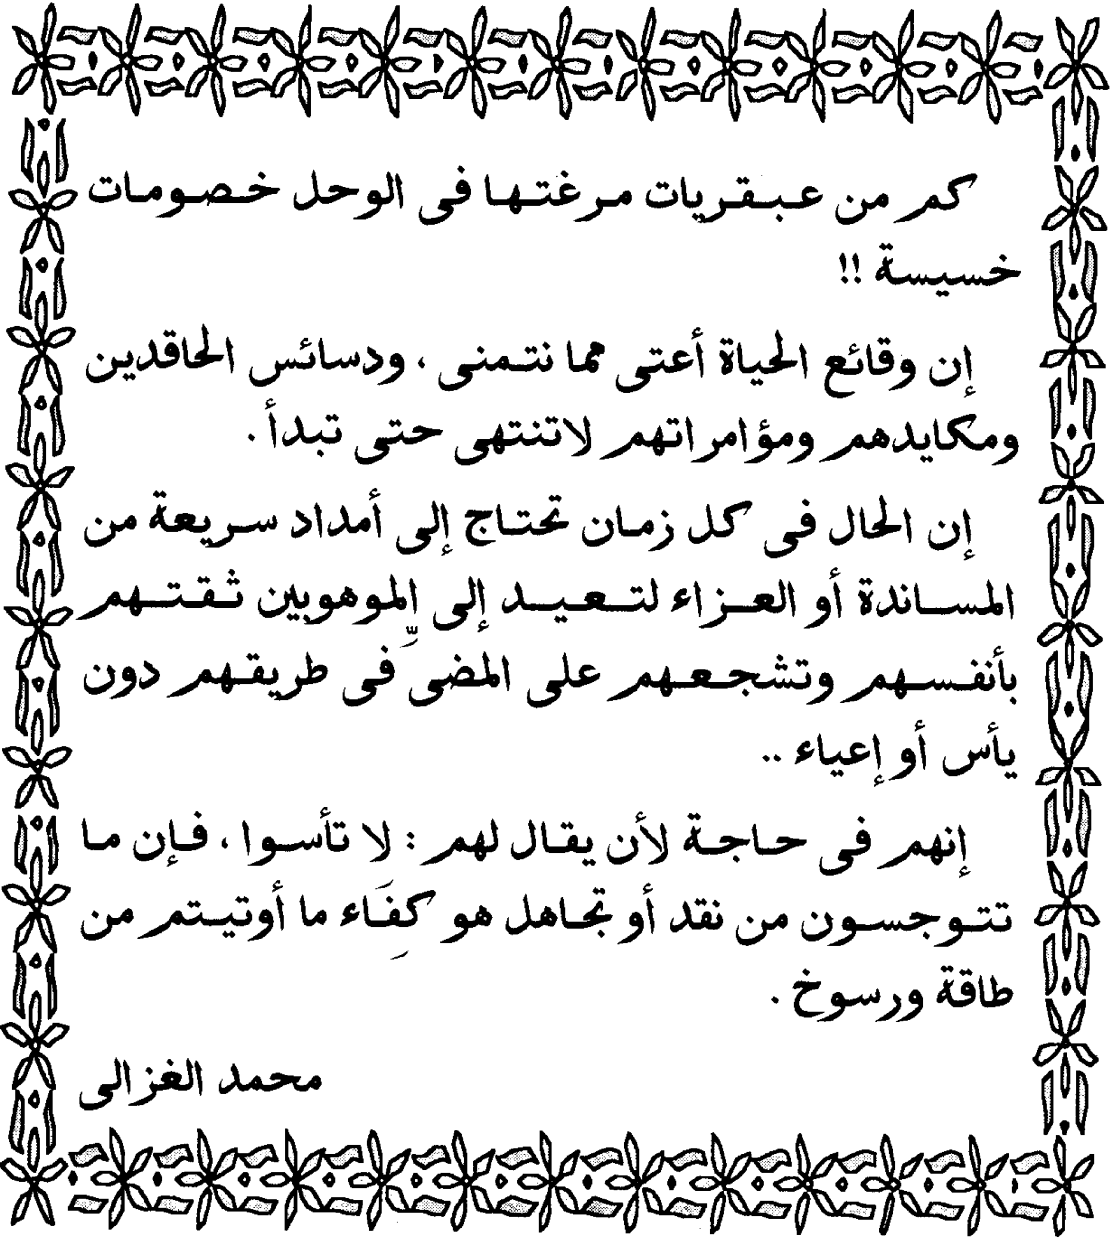 كم من عبقريات مرغتها فى الوحل خصومات
خسيسة !!
إن وقائع الحياة أعتى مما نتمنى ، ودسائس الحاقدين
ومكايدهم ومؤامراتهم لاتنتهى حتى تبدأ .
إن الحال فى كل زمان تحتاج إلى أمداد سريعة من
المساندة أو العزاء لتعيد إلى الموهوبين ثقتهم
بأنفسهم وتشجعهم على المضىِّ فى طريقهم دون
يأس أو إعياء ..
إنهم فى حاجة لأن يقال لهم : لا تأسوا ، فإن ما
تتوجسون من نقد أو تجاهل هو كِفَاء ما أوتيتم من
طاقة ورسوخ .
محمد الغزالى